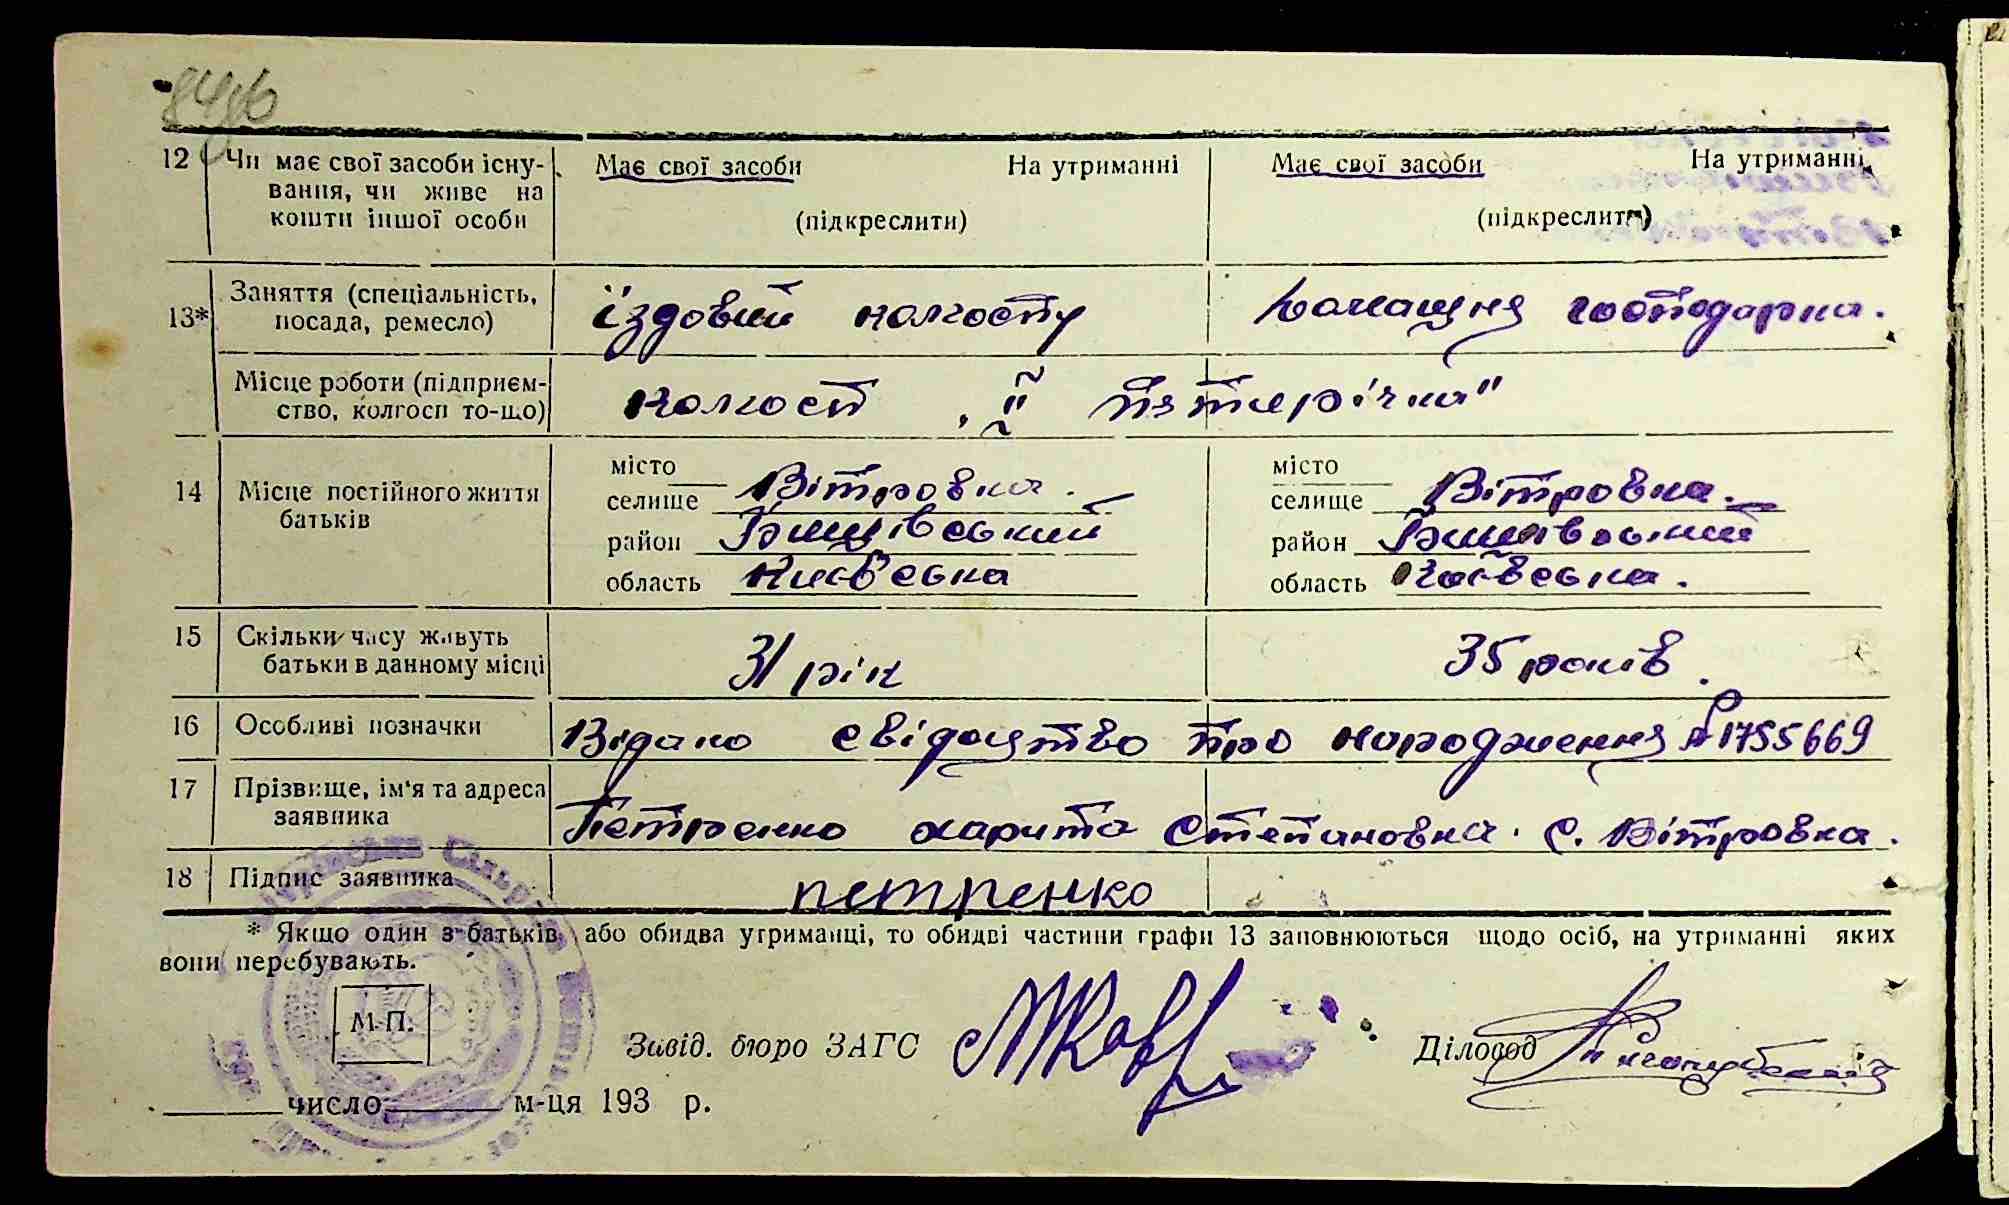 84зв
12 Чи має свої засоби існу- Має свої засоби На утриманні Має свої засоби На утриманні
вання, чи живе на
кошти іншої особи (підкреслити) (підкреслити)
13* Заняття (спеціальність, посада, ремесло) їздовий колгоспу Домашня господарка.
Місце роботи (підприєм-
ство, колгосп то-що) Колгосп „ІІ Пятирічка"
14 Місце постійного життя батьків
місто місто
селище Вітровка. селище Вітровка.
район Бишівський район Бишівський
область Київська область Київська.
15 Скільки часу живуть
батьки в данному місці 31 рік 35 років.
16 Особливі позначки Відано свідоцтво про народження № 1755669
17 Прізвище, ім'я та адреса
заявника Петренко Харита Степановка. С. Вітровка.
18 Підпис заявника петренко
* Якщо один з батьків, або обидва утриманці, то обидві частини графи 13 заповнюються щодо осіб, на утриманні яких
вони перебувають.
М.П.
Завід. бюро ЗАГС Діловод
число м-ця 193 р.